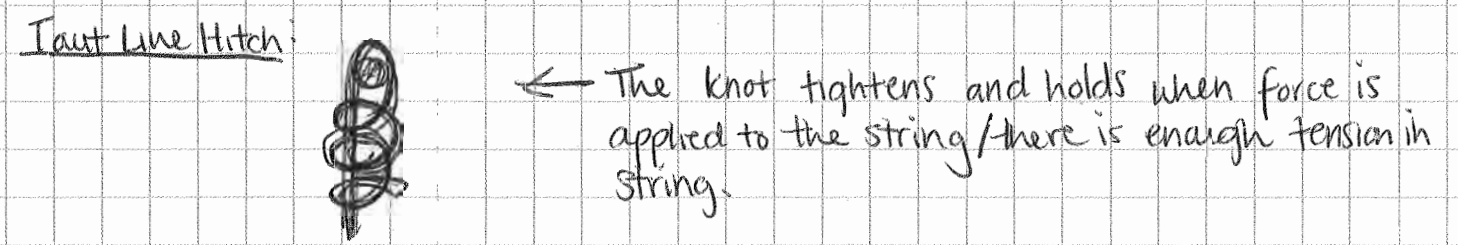 Taut Line Hitch:
← The knot tightens and holds when force is
applied to the string/there is enough tension in
string.